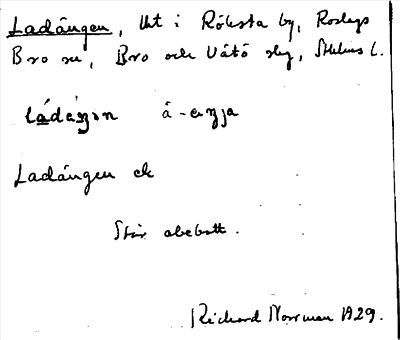 Ladängen, lht i Rörsta by, Roslags
Bro sn, Bro och Vätö slg, Sthlms l.
å-
Ladängen ek
Står obebott.
Richard Norrman 1929.